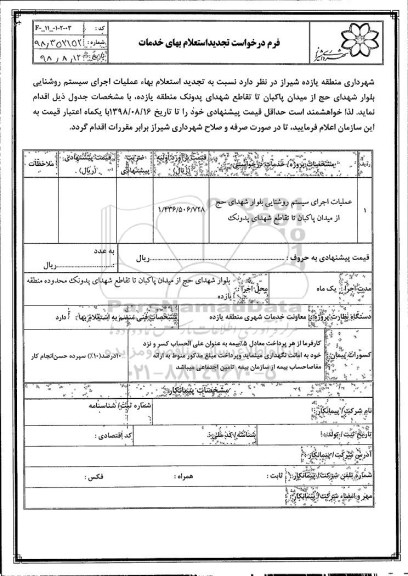 کد: ۰۲-۰۱-۱۱-F۰
شماره: ۹۸/۳۵۷۱۵۲
۹۸/۸/۱۲
فرم درخواست تجدیداستعلام بهای خدمات
شهرداری منطقه یازده شیراز در نظر دارد نسبت به تجدید استعلام بهاء عملیات اجرای سیستم روشنایی
بلوار شهدای حج از میدان پاکبان تا تقاطع شهدای پدونک منطقه یازده، با مشخصات جدول ذیل اقدام
نماید. لذا خواهشمند است حداقل قیمت پیشنهادی خود را تا تاریخ ۱۳۹۸/۰۸/۱۶با یکماه اعتبار قیمت به
این سازمان اعلام فرمایید، تا در صورت صرفه و صلاح شهرداری شیراز برابر مقررات اقدام گردد.
ردیف مشخصات پروژه/ خدمات درخواستی قیمت برآورد اولیه (ریال) ضریب پیشنهادی قیمت پیشنهادی (ریال) ملاحظات
۱ عملیات اجرای سیستم روشنایی بلوار شهدای حج از میدان پاکبان تا تقاطع شهدای پدونک ۱/۴۳۶/۵۰۶/۷۲۸
قیمت پیشنهادی به حروف: ریال به عدد: ریال
مدت اجرا: یک ماه محل اجرا: بلوار شهدای حج از میدان پاکبان تا تقاطع شهدای پدونک محدوده منطقه یازده
دستگاه نظارت پروژه: معاونت خدمات شهری منطقه یازده مشخصات فنی منضم به استعلام بها: دارد
کسورات پیمان: کارفرما از هر پرداخت معادل ۵٪بیمه به عنوان علی الحساب کسر و نزد
خود به امانت نگهداری مینماید وپرداخت مبلغ مذکور منوط به ارائه
مفاصاحساب بیمه از سازمان بیمه تامین اجتماعی میباشد
۱۰درصد(۱۰٪) سپرده حسن انجام کار
مشخصات پیمانکار:
نام شرکت/ پیمانکار: شماره ثبت/ شناسنامه
تاریخ ثبت/ تولد: شناسه/ کد ملی: کد اقتصادی:
آدرس شرکت/ پیمانکار:
شماره تلفن شرکت/ پیمانکار: ثابت: همراه: فکس:
مهر و امضاء شرکت/ پیمانکار: